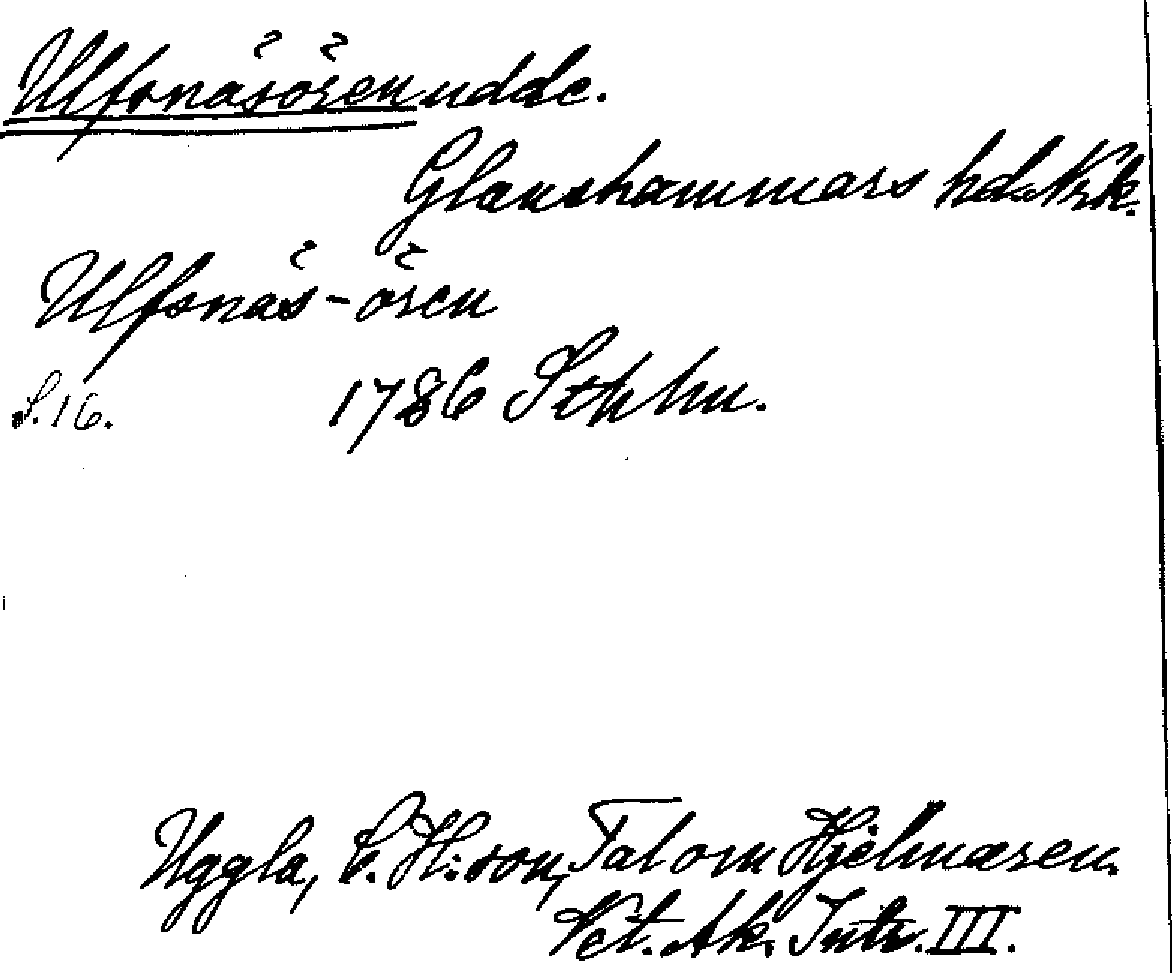 Ulfsnäsören udde.
Glanshammars hd. Nrk.
Ulfsnäs-ören
S. 16. 1786 Sthhm.
Uggla, C. H:son, Tal om Hjelmaren.
Vet. Ak. Intr. III.